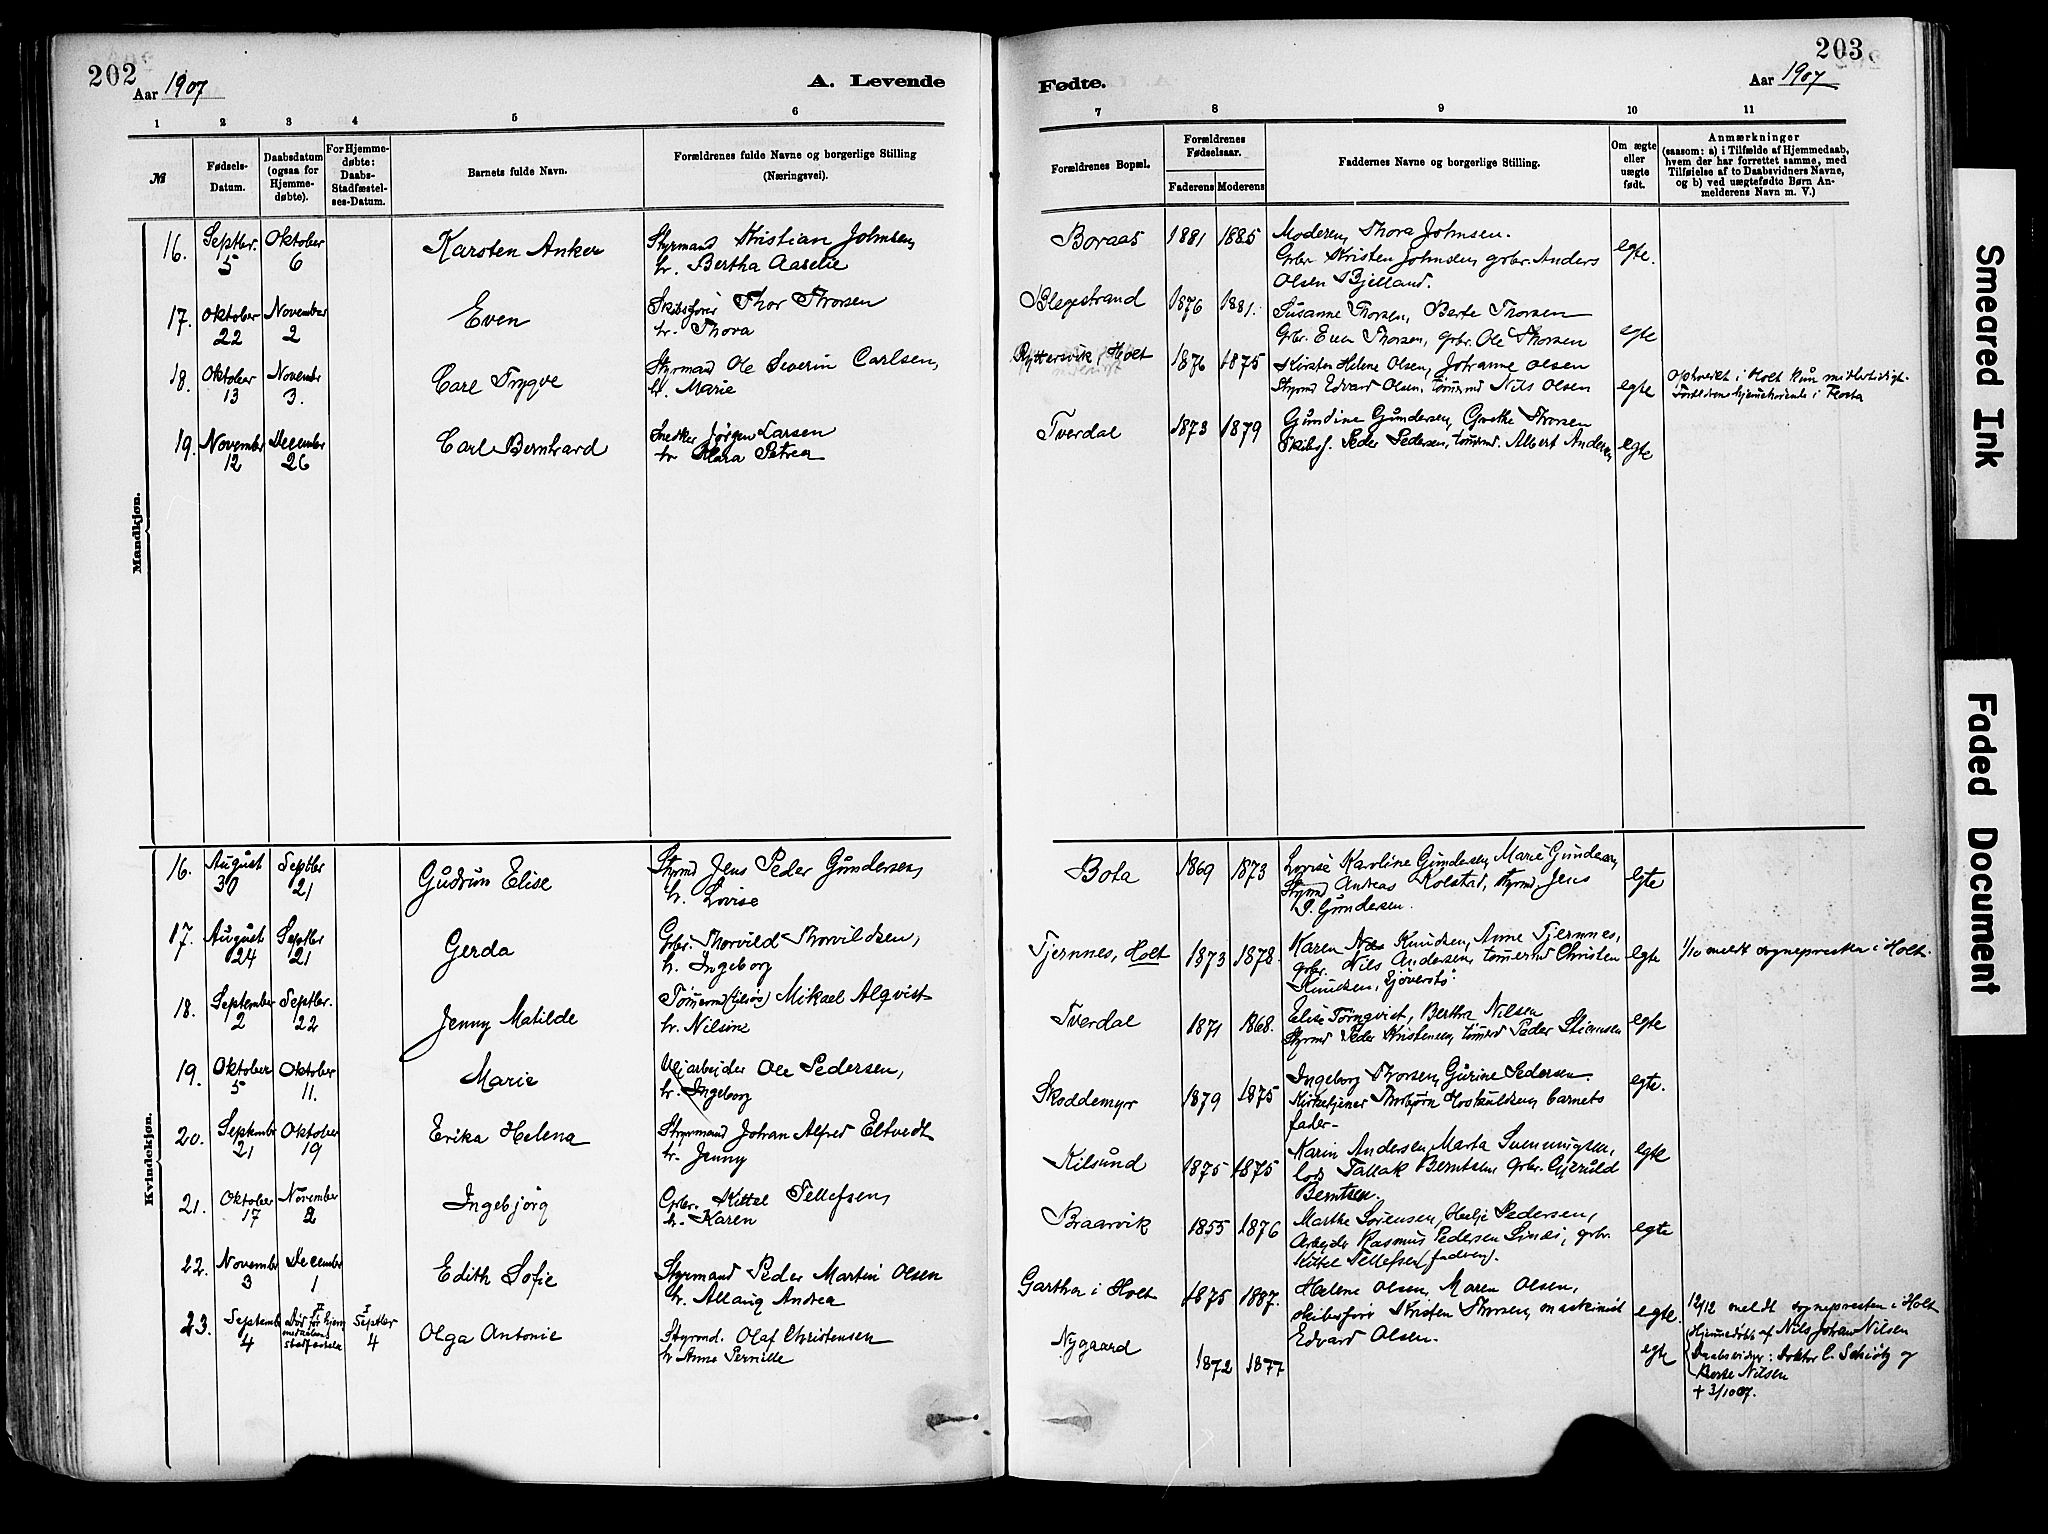 202
Aar 1907
A. Levende
1 2 3 4 5 6
№
Fødsels-Datum.
Daabsdatum (ogsaa for Hjemme-døbte).
For Hjemme-døbte: Daabs-Stadfæstel-ses-Datum.
Barnets fulde Navn.
Forældrenes fulde Navne og borgerlige Stilling
(Næringsvei).
Mandkjøn.
16. Septbr. 5 Oktober 6 Karsten Anker Styrmand Kristian Johnsen, h. Bertha Aarelie
17. Oktober 22 November 2 Even Skibsfører Thor Thorsen h. Thora
18. Oktober 13 Novembr 3. Carl Trygve Styrmand Ole Severin Carlsen, h. Marie
19. November 12 December 26 Carl Bernhard Snedker Jørgen Larsen h. Klara Petrea
Kvindekjøn.
16. August 30 Septbr 21 Gudrun Elise Styrmd Jens Peder Gundersen, h. Lovise
17. August 24 Septbr 21 Gerda Grbr. Thorvild Thorvildsen, h. Ingeborg
18. September 2 Septbr. 22 Jenny Matilde Tømrmd Mikael Alqvist h. Nilsine
19. Oktober 5 Oktober 11. Marie Veiarbejder Ole Pedersen, h. Ingeborg
20. Septembr 21 Oktober 19 Erika Helena Styrmand Johan Alfred Eltvedt h. Jenny
21. Oktober 17 November 2 Ingebjörg Grbr. Kittel Tellefsen, h. Karen
22. November 3 December 1 Edith Sofie Styrmand Peder Martin Olsen h. Allaug Andrea
23. Septembr 4 Død før hjem Septbr 4 Olga Antonie Styrmd. Olaf Christensen h Anne Pernille
203
Fødte.
Aar 1907
7 8 9 10 11
Forældrenes Bopæl.
Forældrenes Fødselsaar.
Faderens Moderens
Faddernes Navne og borgerlige Stilling.
Om ægte eller uægte født.
Anmærkninger
(saasom: a) i Tilfælde af Hjemmedaab,
hvem der har forrettet samme, med
Tilføielse af to Daabsvidners Navne,
og b) ved uægtefødte Børn An-
melderens Navn m. V.)
Boraas 1881 1885 Moderen, Thora Johnsen.
Grbr Kristen Johnsen, grbr. Anders
Olsen Bjelland. egte.
Blegestrand 1876 1881. Susanne Thorsen, Berte Thorsen
Grbr. Even Thorsen, grbr. Ole Thorsen egte
Ryttersvik, Holt 1876 1875 Kirsten Helene Olsen, Johanne Olsen
Styrmd Edvard Olsen, tømrmd Nils Olsen egte Opholdt i Holt kun midlertidigt.
Forældrene hjemhørende i Flosta
Tverdal 1873 1879 Gundine Gundersen, Grethe Thorsen
Skibsf. Peder Pedersen, tømrmd. Albert Andersen egte
Bota 1869 1873 Lovise Karoline Gundersen, Marie Gundersen,
Styrmd Andreas Kolstad, styrmd Jens
P. Gundersen. egte
Tjernnes, Holt 1873 1878. Karen Knudsen, Anne Tjernnes,
grbr. Nils Andersen, tømrmd Christen
Knudsen, egte 1/10 meldt sognepresten i Holt.
Tverdal 1871 1868. Elise Törnqvist, Bertha Nilsen
Styrmd Peder Kristensen, tømrmd Peder egte
Skoddemyr 1879 1875 Ingeborg Thorsen, Gurine Pedersen.
Kirketjener Thorbjørn Hoskuldsen, barnets
fader- egte.
Kilsund 1875 1875 Karin Andersen, Marta Svenningsen,
lods Tallak Berntsen, grbr. Gjeruld
Berntsen. egte
Braarvik 1855 1876 Marthe Sørensen, Helje Pedersen,
Arbejder Rasmus Pedersen, grbr.
Kittel Tellefsen (faderen). egte
Gartha i Holt 1875 1887. Helene Olsen, Maren Olsen,
skibsfører Kristen Thorsen, maskinist
Edvard Olsen. egte. 12/12 meldt sognepresten i Holt
Nygaard 1872 1877 egte Hjemmedøbt af Nils Johan Nilsen
Daabsvidner: Doktor C. Schiötz og
Berte Nilsen
+ 3/10 07.
Smeared Ink
Faded Document